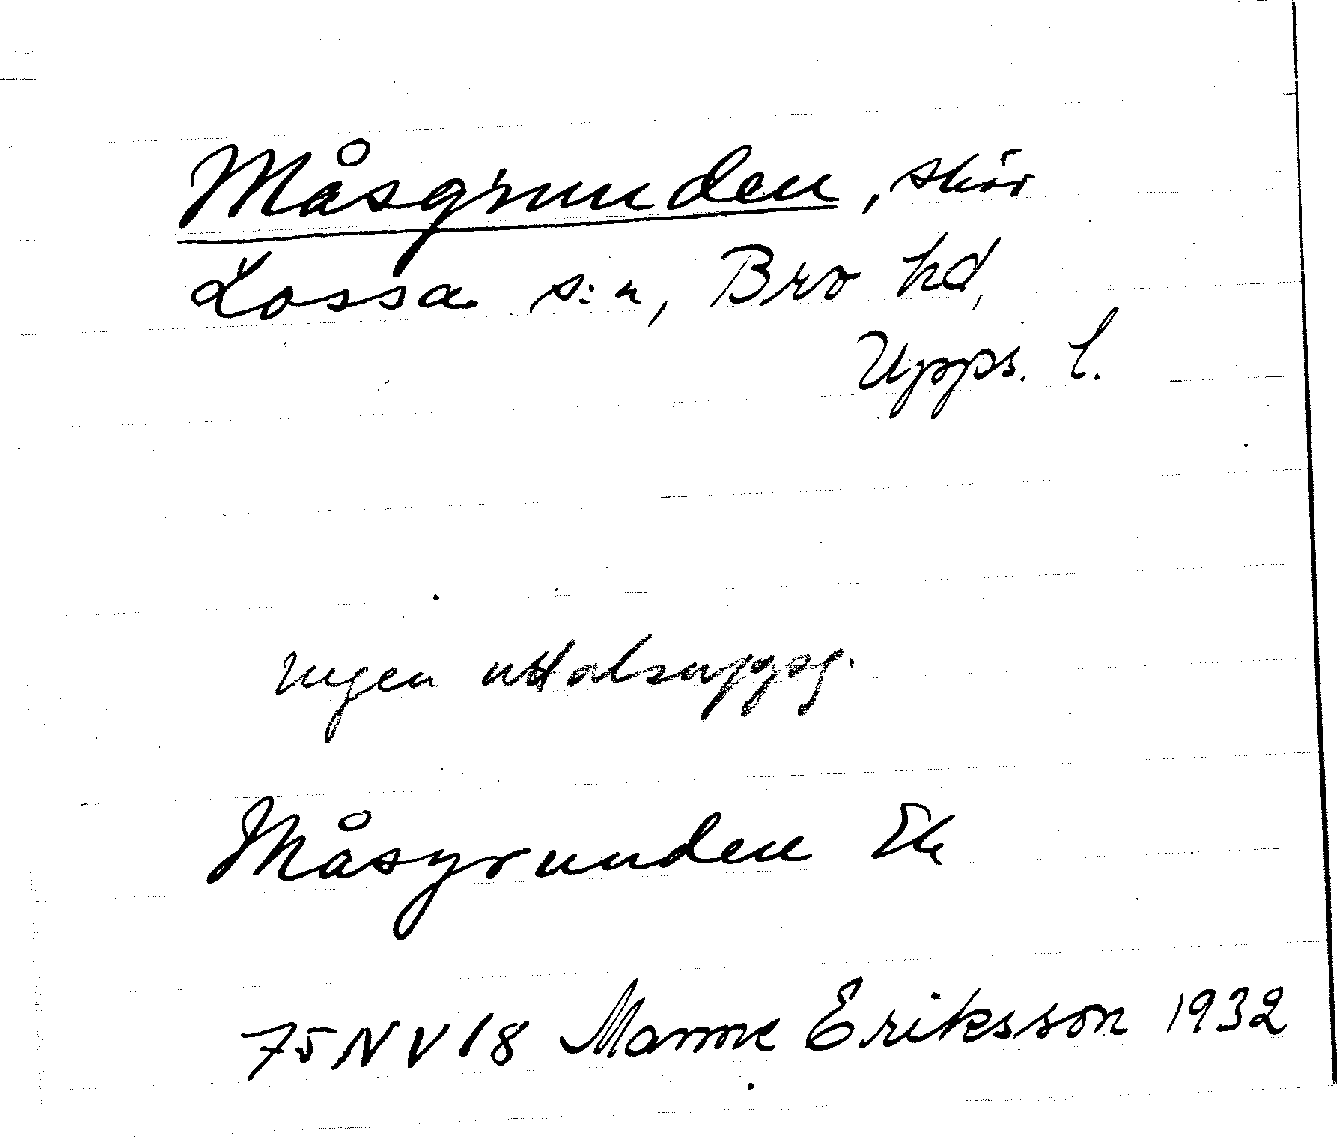 Måsgrunden, skär
Lossa s:n, Bro hd,
Upps. l.
Ingen uttalsuppg.
Måsgrunden Ek
75 NV 18 Manne Eriksson 1932